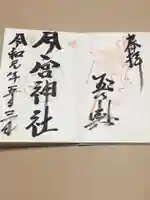 奉拝
今宮神社
令和元年五月三日